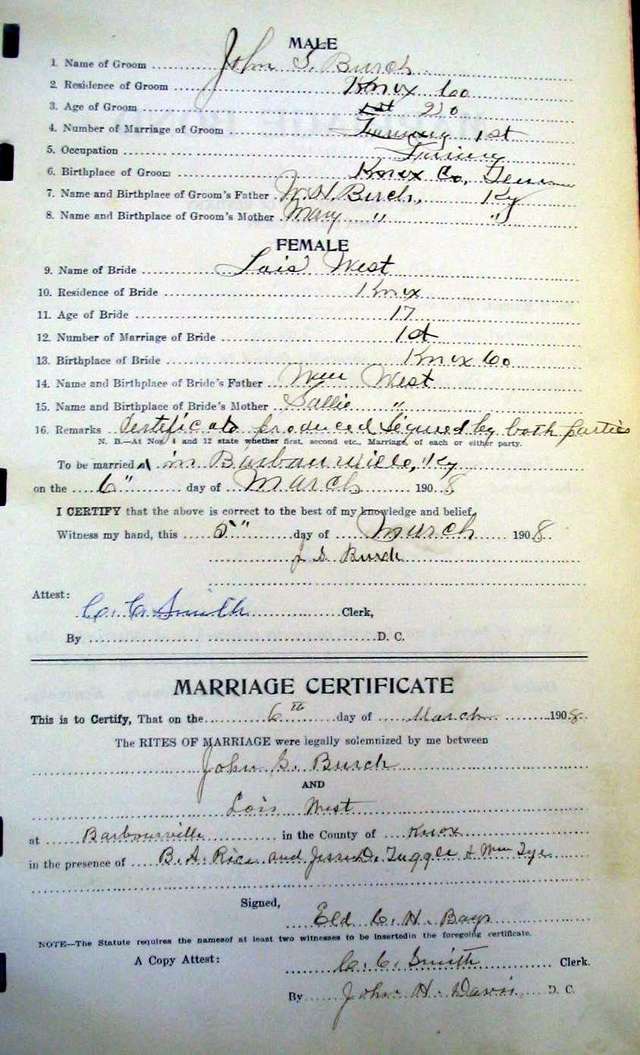 MALE
1. Name of Groom John S. Burch
2. Residence of Groom Knox Co
3. Age of Groom 1st 20
4. Number of Marriage of Groom 1st
5. Occupation Farming
6. Birthplace of Groom Knox Co, Tenn
7. Name and Birthplace of Groom's Father W. H. Burch, Ky
8. Name and Birthplace of Groom's Mother Mary " "
FEMALE
9. Name of Bride Lois West
10. Residence of Bride Knox
11. Age of Bride 17
12. Number of Marriage of Bride 1st
13. Birthplace of Bride Knox Co
14. Name and Birthplace of Bride's Father Wm West
15. Name and Birthplace of Bride's Mother Sallie "
16. Remarks Certificate produced Signed by both parties
N. B.—At Nos. 4 and 12 state whether first, second etc., Marriage, of each or either party.
To be married at in Barbourville, Ky
on the 6" day of March 1908
I CERTIFY that the above is correct to the best of my knowledge and belief.
Witness my hand, this 5" day of March 1908
J S Burch
Attest:
C. C. Smith Clerk,
By D. C.
MARRIAGE CERTIFICATE
This is to Certify, That on the 6th day of March 1908
The RITES OF MARRIAGE were legally solemnized by me between
John S. Burch
AND
Lois West
at Barbourville in the County of Knox
in the presence of B. A. Rice and Jesse D. Tuggle & Wm Tye
Signed,
Eld C. H. Bays
NOTE—The Statute requires the namesof at least two witnesses to be insertedin the foregoing certificate.
A Copy Attest: C. C. Smith Clerk.
By John H. Davis D. C.